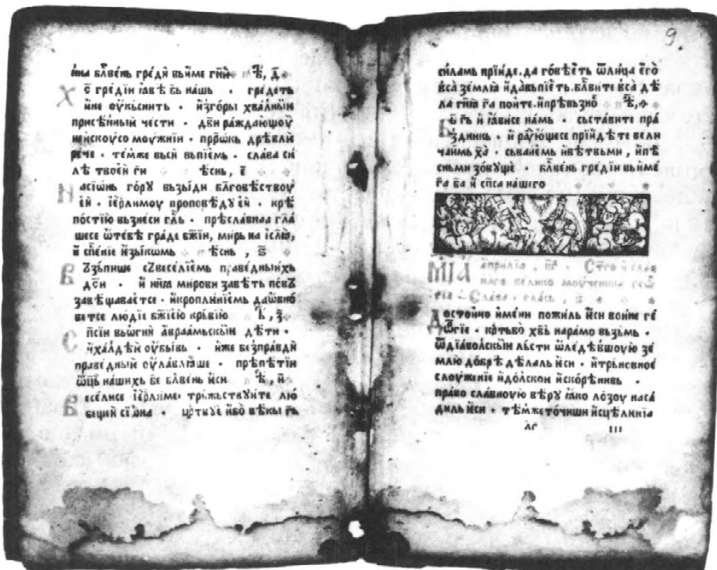 нна бл҃вень греди выиме гн҃ѥ ѣ, д҃
Х с҃ гредїи ꙗвѣ б҃ь нашь · гредеть
и не оукьснить · изгоры хвалнїи
присѣнныи чести · дв҃и раждающоу
нейскоусо моужнїи · пррⷪ҇кь дрѣвлѥ
рече · тѣмже вьси вьпїемь · слава си
лѣ твоеи гн҃ ѣснь, е҃
Н асїѡнь гору вьзыди бл҃говѣствоу
еи · їерⷭ҇лимоу проповѣдуеи · крѣ
постїю вьзнеси гл҃ь · прѣславнаа гла
шесе ѡтебѣ граде бж҃їи, мирь на їсл҃ꙗ,
и сп҃енїе ꙗзыкомь ѣснь, ѕ҃
В ьзьпише сьвеселїемь праведныихь
дс҃и · и нн҃ꙗ мирови завѣть новь
завѣщаваетсе · и кроплннїемь да ѡбно
ветсе людїе бж҃їею крьвїю ѣ, з҃
С п҃сїи вьѡгни авраамьскыи дѣти ·
и халдѣи оубивь · иже безправди
праведныи оулавлꙗше · прѣпѣтїи
ѡц҃ь нашихь бе бл҃вень ѥси ѣ, и҃
В еселисе їерⷭ҇лиме · трьжьствуите лю
бещиї сїѡна · цр҃твуе ибо вѣкы гь҃
9.
силамь прїиде. да говѣѥть ѿлица его
вса земла и давьпїеть. бл҃вите вса дѣ
ла гн҃ꙗ г҃а поите. и прѣвьзно ѣ, ѳ҃
Б ь҃ гь҃ и ꙗвисе намь · сьставите пра
здникь · и радꙋющесе прїидѣте вели
чаимь х҃а · сьваиѥмь и вѣтвьми, и пѣ
сньми зовꙋще · бл҃вень гредїи выиме
г҃а б҃а и сп҃са нашего
МЦ҃А априлїа, кг҃ · Ст҃го и слав
наго велико моученика геѡ
гїа · Слава · глась,
Д остоино имени пожиль ѥси воине ге
ѡгїе · крⷭ҇ть бо хв҃ь нарамо вьзьмь ·
ѿдїаволскыи льсти ѡледѣвшоую зе
млю добрѣ дѣлаль ѥси · и трьновное
слоуженїе идолскои искорѣнивь ·
право славноую вѣру ꙗко лозоу наса
диль ѥси · тѣмже точиши исцѣлнїа
лг
ш